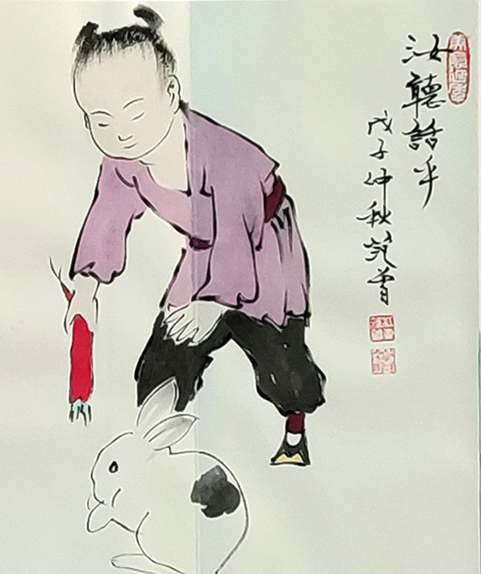 汝聽話乎
戊子仲秋范曾